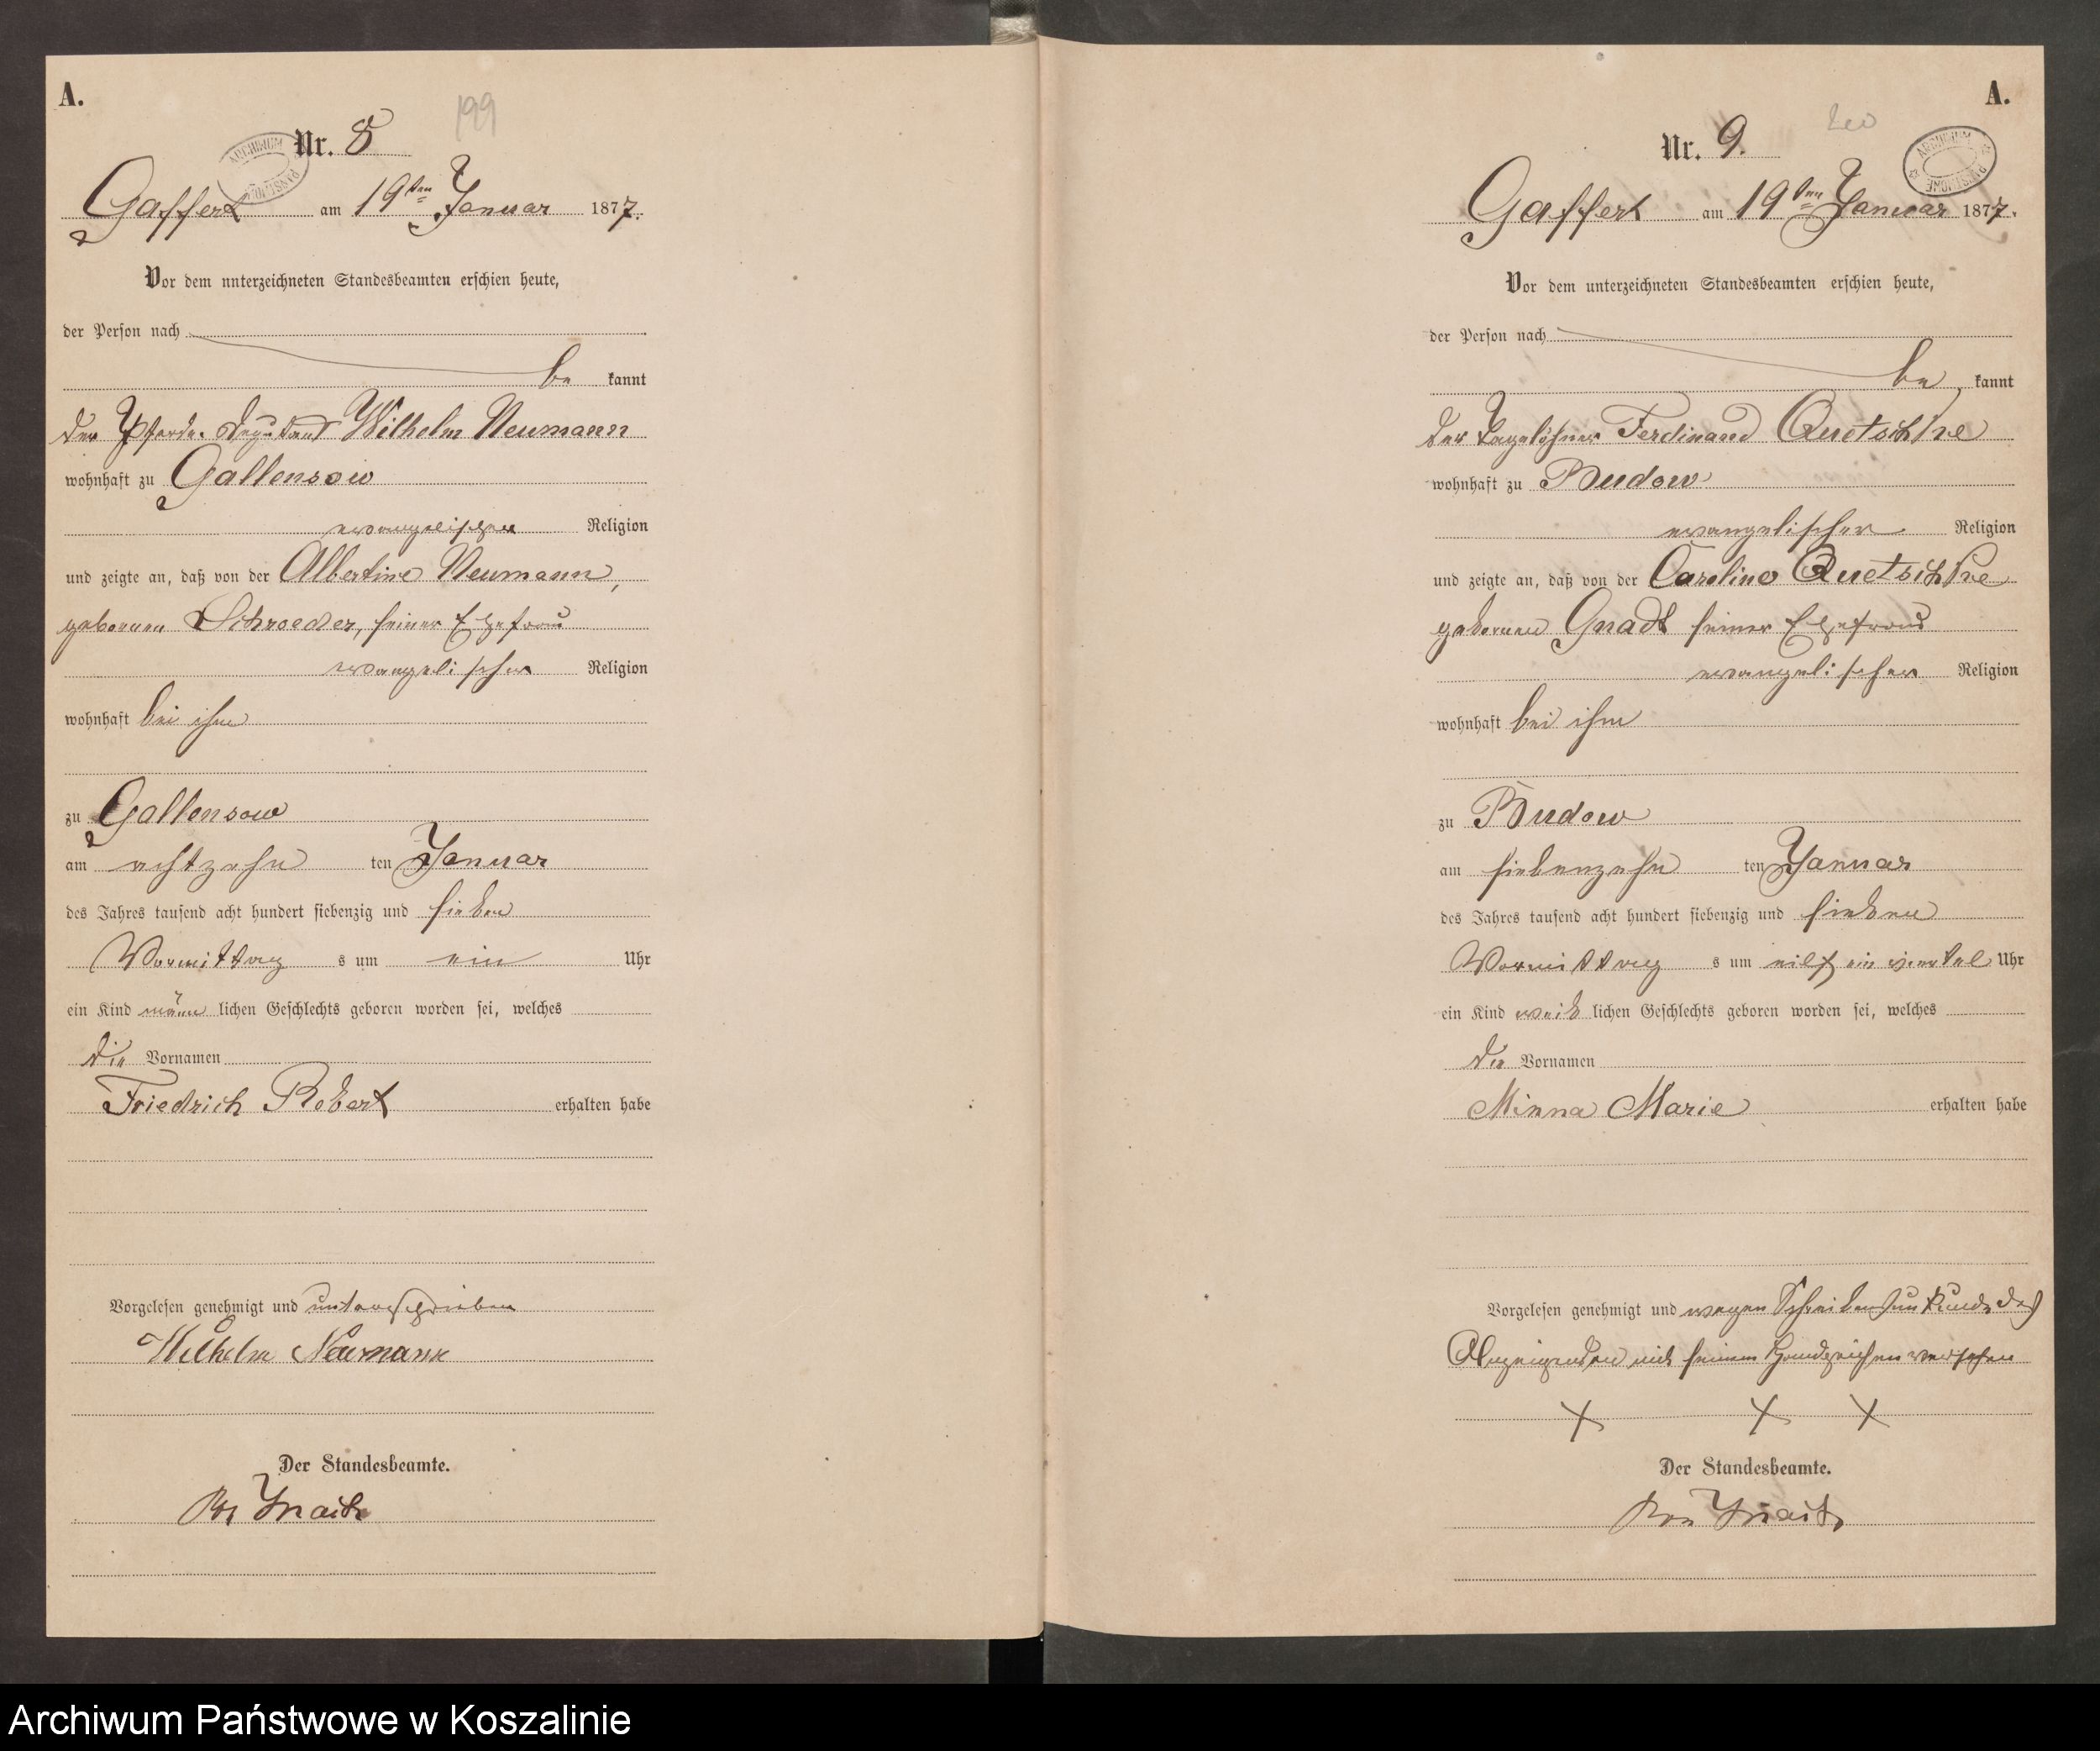 A.
199
Nr. 8
ARCHIWUM PAŃSTWOWE
Gaffert am 19ten Januar 1877.
Vor dem unterzeichneten Standesbeamten erschien heute,
der Person nach
be kannt
der Pferde-Deputant Wilhelm Neumann
wohnhaft zu Gallensow
evangelischer Religion
und zeigte an, daß von der Albertine Neumann,
geborenen Schroeder, seiner Ehefrau
evangelischer Religion
wohnhaft bei ihm
zu Gallensow
am achtzehn ten Januar
des Jahres tausend acht hundert siebenzig und sieben
Vormittag s um ein Uhr
ein Kind männ lichen Geschlechts geboren worden sei, welches
die Vornamen
Friedrich Robert erhalten habe
Vorgelesen genehmigt und unterschrieben
Wilhelm Neumann
Der Standesbeamte.
A.
200
Nr. 9.
ARCHIWUM PAŃSTWOWE
Gaffert am 19ten Januar 1877.
Vor dem unterzeichneten Standesbeamten erschien heute,
der Person nach
be kannt
der Tagelöhner Ferdinand Quetschke
wohnhaft zu Budow
evangelischer Religion
und zeigte an, daß von der Caroline Quetschke
geborenen Gnadt seiner Ehefrau
evangelischer Religion
wohnhaft bei ihm
zu Budow
am siebenzehn ten Januar
des Jahres tausend acht hundert siebenzig und sieben
Vormittag s um eilf ein viertel Uhr
ein Kind weib lichen Geschlechts geboren worden sei, welches
die Vornamen
Minna Marie erhalten habe
Vorgelesen genehmigt und wegen Schreibensunkunde des
Anzeigenden mit seinem Handzeichen versehen
X X X
Der Standesbeamte.
Archiwum Państwowe w Koszalinie